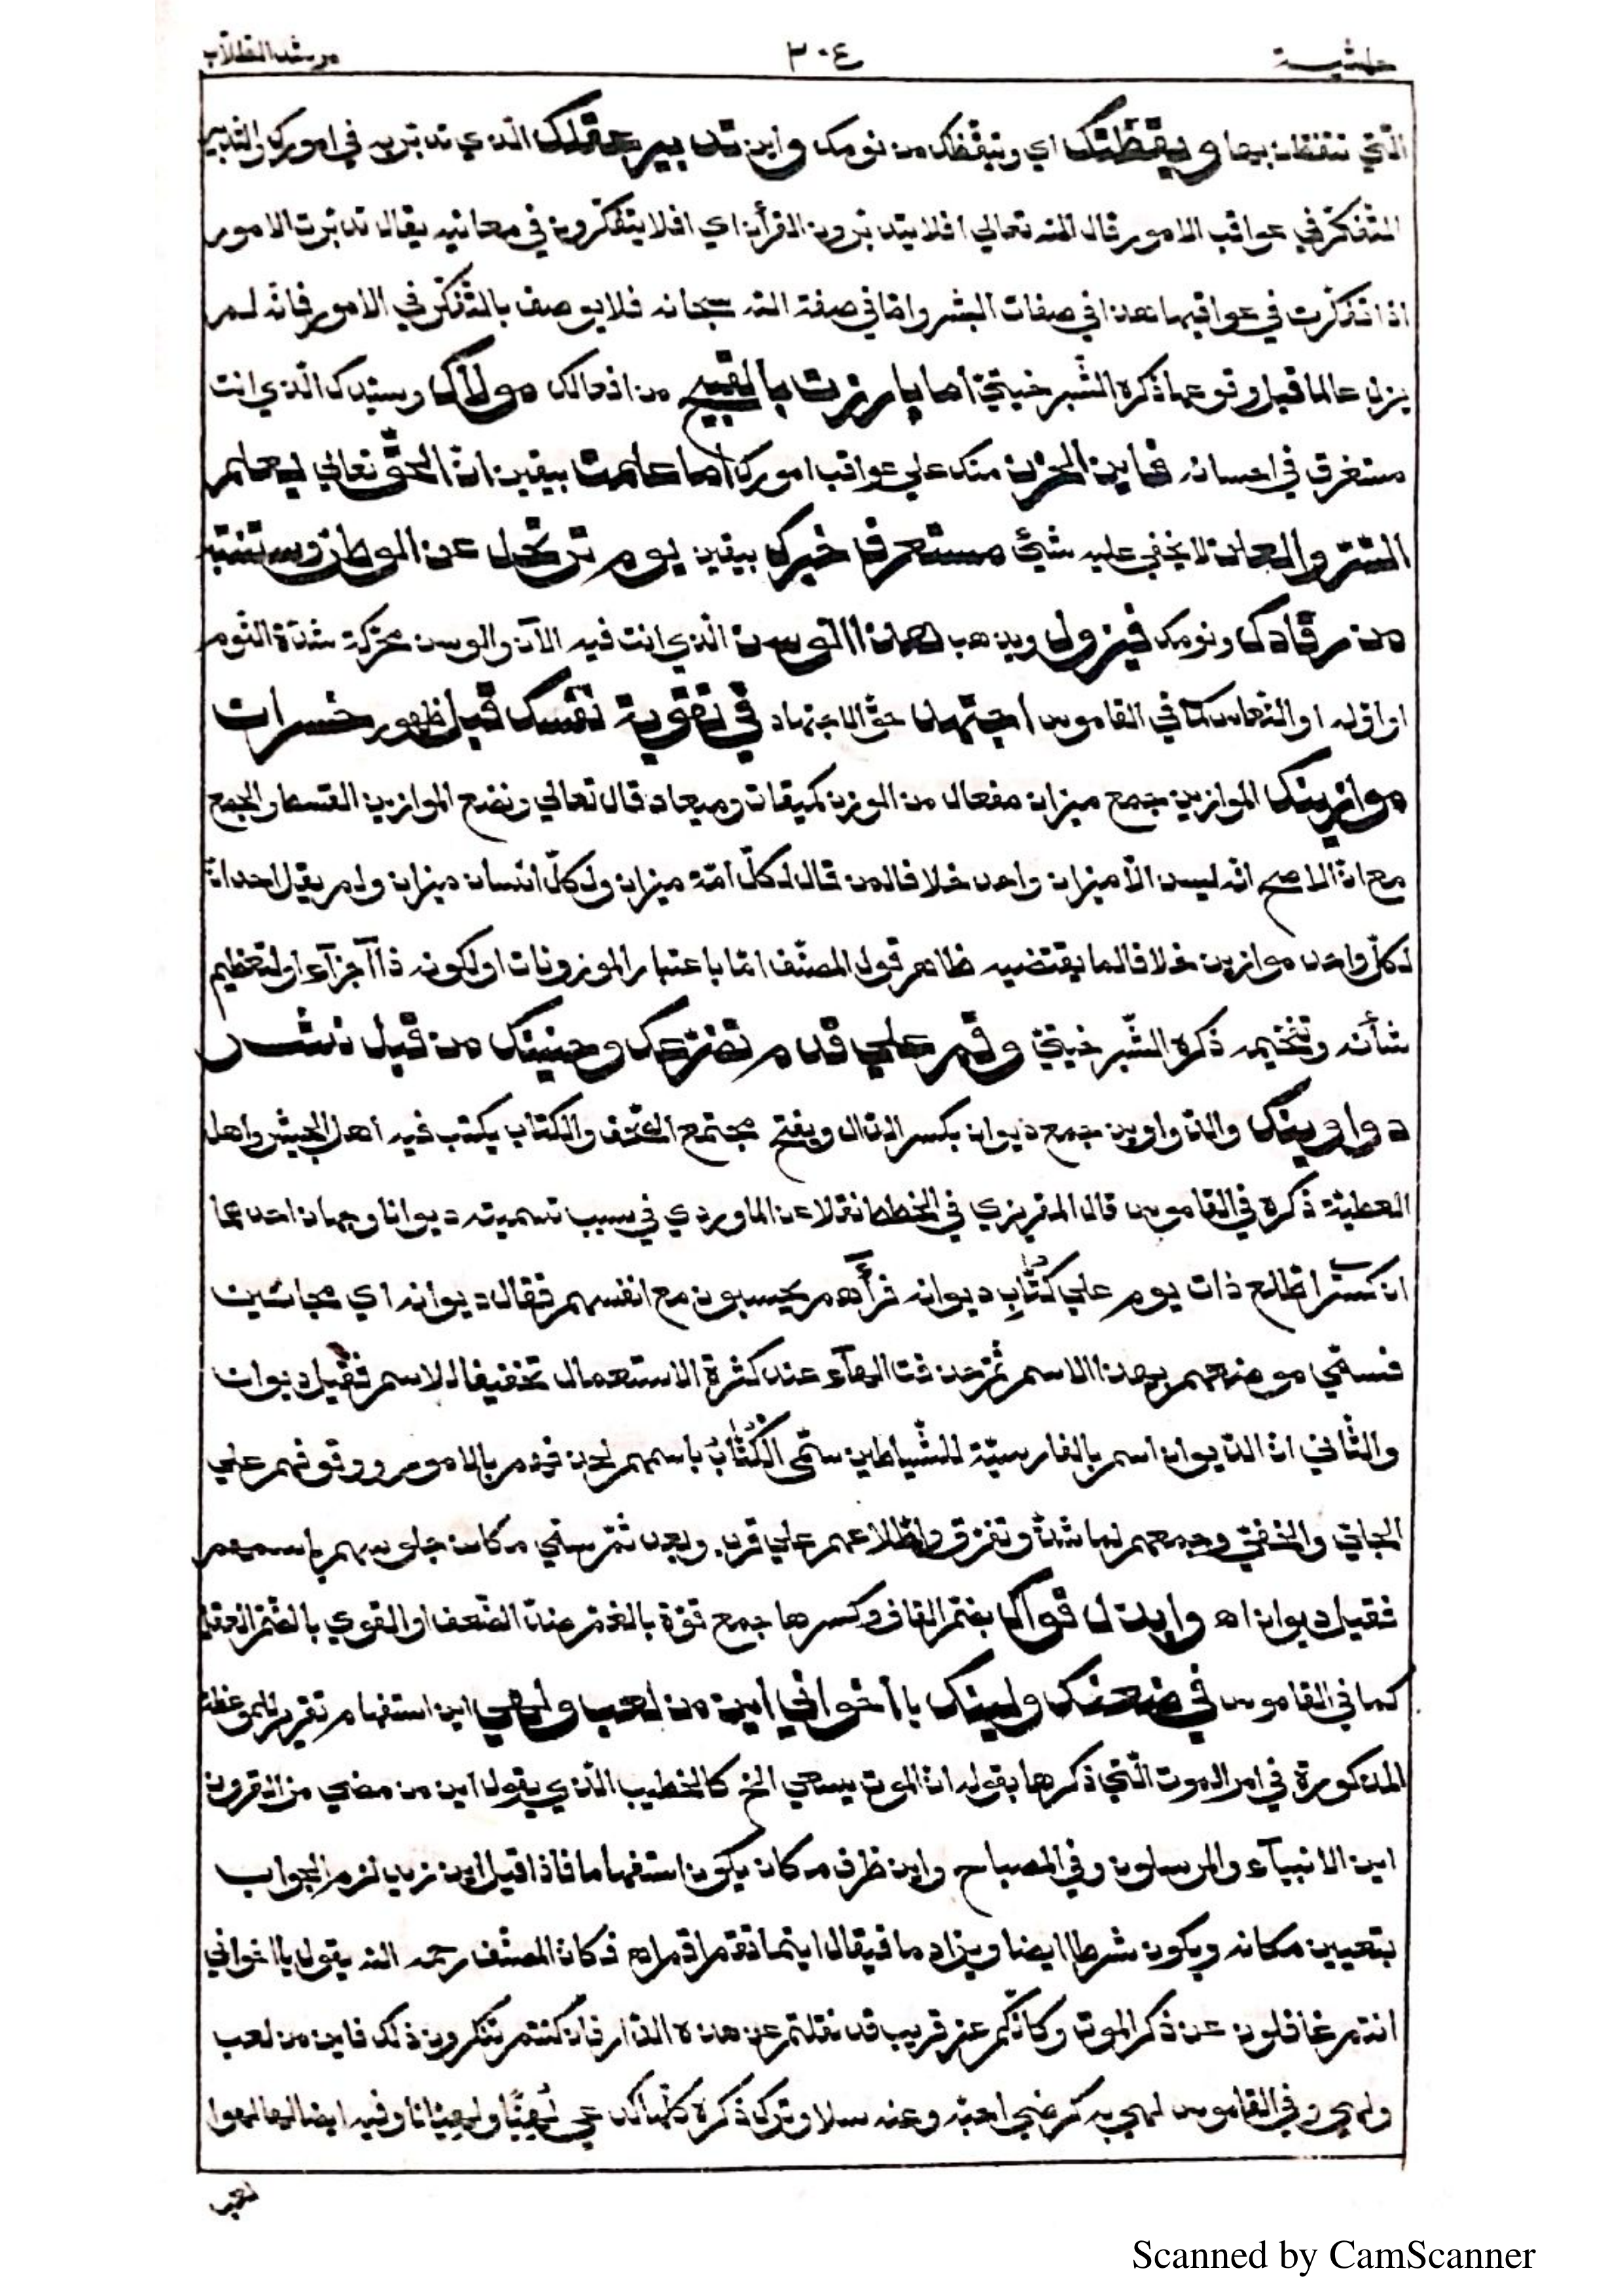 حاشية ٣٠٤ مرشد الطلاب
الّتي تتفطّن بها ويقظتك اي وتيقّظك من نومك واين تدبير عقلك الذي تدبّر به في امورك والتّدبير
التّفكّر في عواقب الامور قال الله تعالي افلا يتدبّرون القرأن اي افلا يتفكّرون في معانيه يقال تدبّرت الامور
اذا تفكّرت في عواقبها هذا في صفات البشر وامّا في صفة الله سبحانه فلا يوصف بالتّفكّر في الامور فانّه لم
يزل عالما قبل وقوعها ذكره الشّبرخيتيّ أما بارزت بالقبيح من افعالك مولاك وسيّدك الّذي انت
مستغرق في احسانه فاين الحزن منك علي عواقب امورك أما علمت بيقين انّ الحقّ تعالي يعلم
السّرّ والعلن لا يخفي عليه شئ ستعرف خبرك بيقين يوم ترتحل عن الوطن وستنتبه
من رقادك ونومك فيزول ويذهب هذا الوسن الّذي انت فيه الآن والوسن محرّكة شدّة النّوم
او اوّله او النّعاس كما في القاموس اجتهد حقّ الاجتهاد في تقوية نفسك قبل ظهور خسرات
موازينك الموازين جمع ميزان مفعال من الوزن كميقات وميعاد قال تعالي ونضع الموازين القسط والجمع
مع انّ الاصح انّه ليس الّا ميزان واحد خلافا لمن قال لكلّ امّة ميزان ولكلّ انسان ميزان ولم يقل احد انّ
لكلّ واحد موازين خلافا لما يقتضيه ظاهر قول المصنّف امّا باعتبار الموزونات او لكونه ذا أجزآء او لتعظيم
شأنه وتفخيمه ذكره الشّبرخيتيّ وقم علي قدم تضرّعك وحنينك من قبل نشر
دواوينك والدّواوين جمع ديوان بكسر الدّال ويفتح مجتمع الصّحف والكتاب يكتب فيه اهل الجيش واهل
العطيّة ذكره في القاموس قال المقريزي في الخطط نقلا عن الماوردي في سبب تسميته ديوانا وجهان احدهما
ان كسرا اطّلع ذات يوم علي كتّاب ديوانه فرأهم يحسبون مع انفسهم فقال ديوانه اي مجانين
فسمّي موضعهم بهذا الاسم ثمّ حذفت الهآء عند كثرة الاستعمال تخفيفا للاسم فقيل ديوان
والثّاني انّ الدّيوان اسم بالفارسيّة للشّياطين سمّى الكُتّابُ باسمهم لحذقهم بالامور ووقوفهم علي
الجليّ والخفيّ وجمعهم لما شذّ وتفرّق واطّلاعهم علي قرب وبعد ثمّ سمّي مكان جلوسهم باسمهم
فقيل ديوان اه وابذل قواك بضمّ القاف وكسرها جمع قوّة بالضّم ضدّ الضّعف او القوي بالضّمّ العقل
كما في القاموس في ضعفك ولينك يا أخواني أين من لعب ولهي اين استفهام تقرير للموعظة
المذكورة في امر الموت الّتي ذكرها بقوله انّ الموت يسعي الخ كالخطيب الّذي يقول اين من مضي من القرون
اين الانبيآء والمرسلون وفي المصباح واين ظرف مكان يكون استفهاما فاذا قيل اين زيد لزم الجواب
بتعيين مكانه ويكون شرطا ايضا ويزاد ما فيقال اينما تقم اقم اه فكانّ المصنّف رحمه الله يقول يا اخواني
انتم غافلون عن ذكر الموت وكانّكم عن قريب قد نقلتم عن هذه الدّار فان كنتم تنكرون ذلك فاين من لعب
ولهي وفي القاموس لهي به كرضي احبّه وعنه سلا وترك ذكره كلها كدعي لُهِيًّا ولِهيانا وفيه ايضا لها لهوا
لعب
Scanned by CamScanner